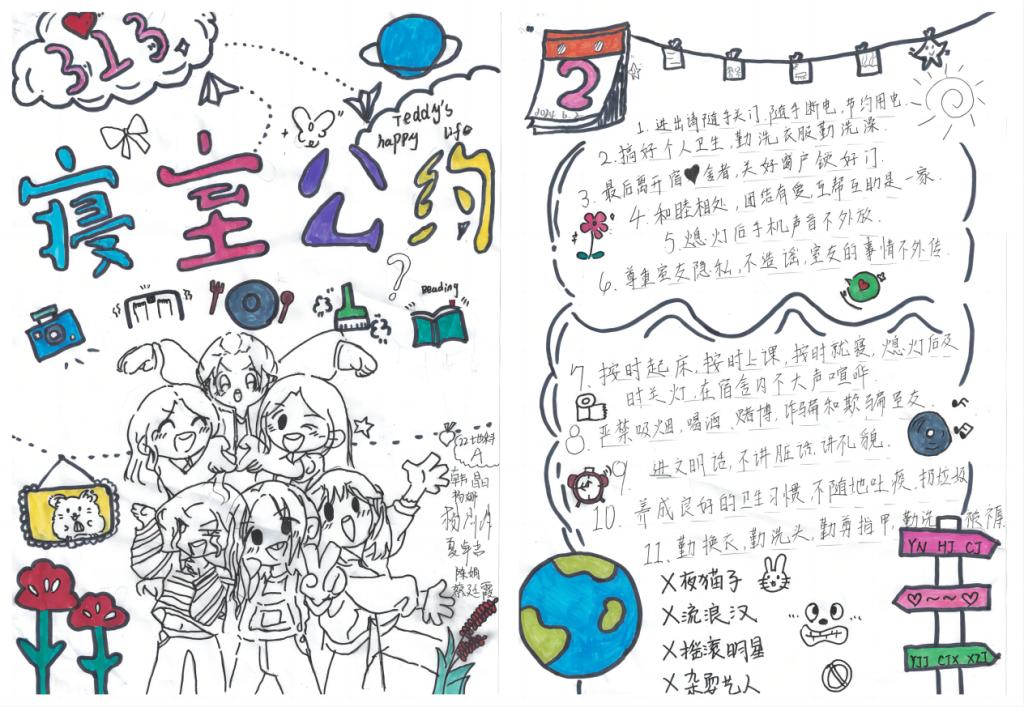 313
Teddy's
happy life
寝室公约
Reading
A
韩
杨娜
夏卓志
陈娟
2
1. 进出请随手关门,随手断电,节约用电.
2. 搞好个人卫生,勤洗衣服勤洗澡.
3. 最后离开宿舍者,关好窗户锁好门.
4. 和睦相处,团结有爱,互帮互助是一家.
5. 熄灯后手机声音不外放.
6. 尊重室友隐私,不造谣,室友的事情不外传.
7. 按时起床,按时上课,按时就寝,熄灯后及
时关灯,在宿舍内不大声喧哗.
8. 严禁吸烟,喝酒,赌博,诈骗和欺骗室友.
9. 进文明话,不讲脏话,讲礼貌.
10. 养成良好的卫生习惯,不随地吐痰,扔垃圾
11. 勤换衣,勤洗头,勤剪指甲,勤洗被褥
X 夜猫子
X 流浪汉
X 摇滚明星
X 杂耍艺人
YN HJ CJ
YJJ CJX XZJ